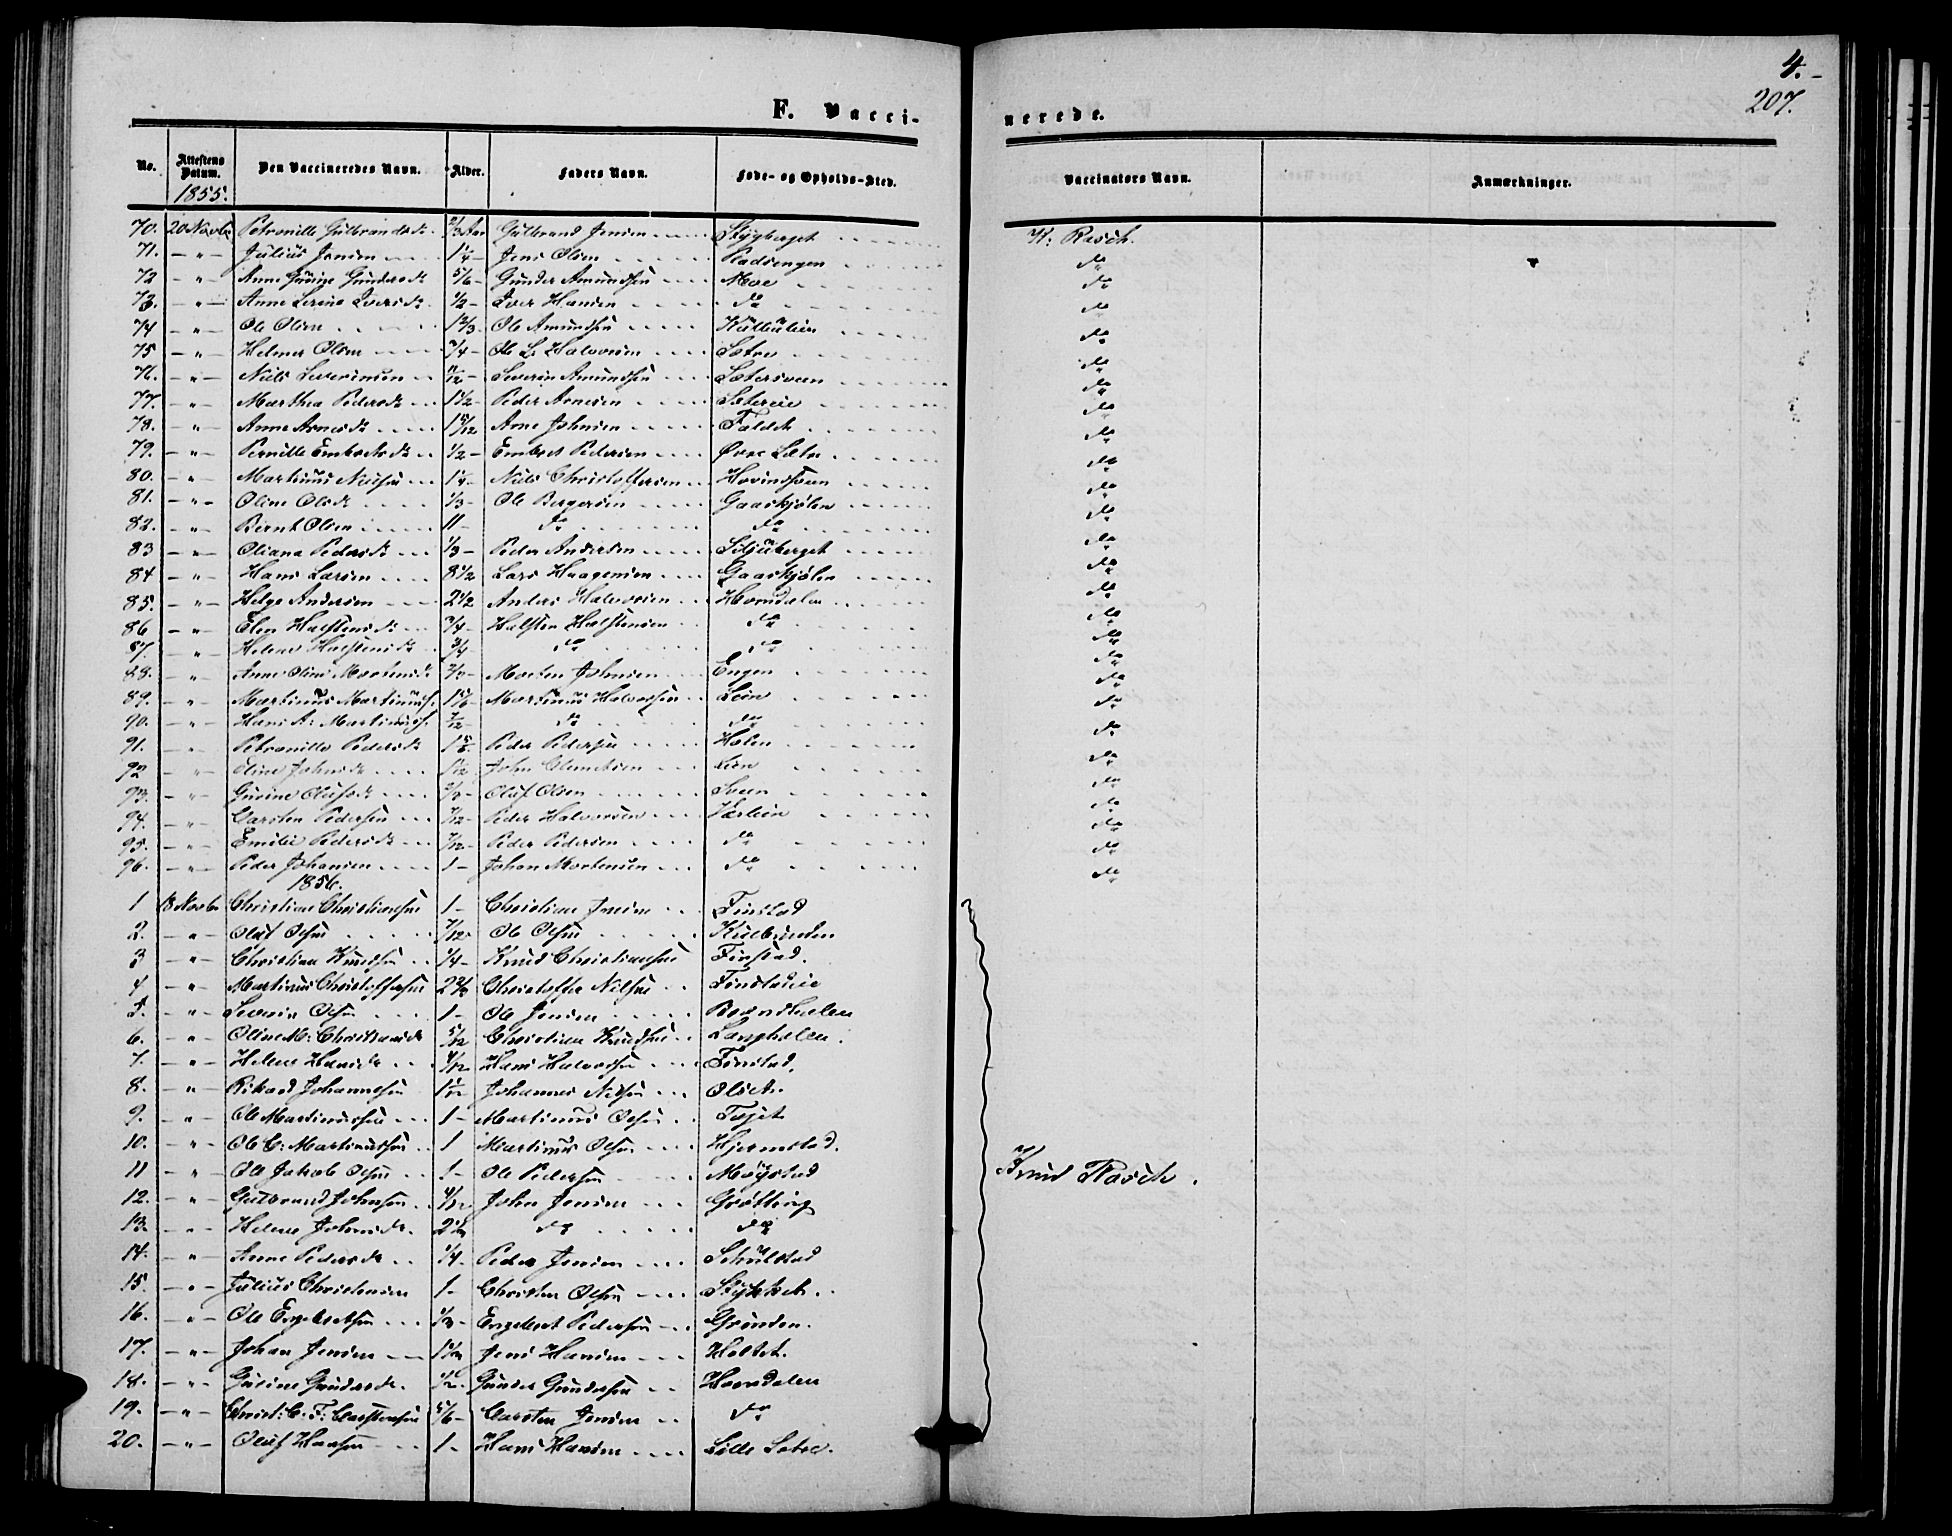 4.
207.
F. Vacci-
nerede.
No. Attestens Datum. Den Vaccineredes Navn. Alder. Faders Navn. Føde- og Opholds-Sted. Vaccinators Navn. Anmærkninger.
1855.
70. 20 Novbr Petronille Gulbrandsd. 2/3 Aar Gulbrand Jensen Stygberget K: Rasch.
71. - " - Julius Jensen 1 1/4 - Jens Olsen Pladsengen do
72 - " - Anne Gurine Gundersd. 5/6 - Gunder Amundsen Moe do
73. - " - Anne Lovise Iversd. 1/2 - Iver Hansen do do
74 - " - Ole Olsen 1 2/3. Ole Amundsen Kulliulien do
75 - " - Helmer Olsen 3/4 - Ole L. Halvorsen Sætre do
76. - " - Niels Severinsen Severin Amundsen Sætersveen do
77. - " - Marthea Pedersd. 1 1/2 - Peder Arnesen Sætereie do
78. - " - Anne Arnesd. 1 5/12 Arne Johnsen Faldet do
79. - " - Pernille Embretsd. 1/2 - Embret Pedersen Øvre Sætre do
80. - " - Martinus Nielsen Niels Christoffersen Hovindsveen do
81. - " - Oline Olsd. 1/3 - Ole Bergersen Gaaskjølen do
82. - " - Bernt Olsen 11 - do do do
83 - " - Oliana Pedersd. 1/3 - Peder Andersen Siljuberget do
84 - " - Hans Larsen 8 1/2 Lars Haagensen Gaaskjølen do
85. - " - Helge Andersen 2 1/2 Anders Halvorsen Horndalen do
86 - " - Elen Halstensd. 3/4 - Halsten Halstensen do do
87. - " - Helene Halstensd. 3/4 do do do
88. - " - Anne Oline Mortensd. Morten Johnsen Engen do
89. - " - Martinus Martinus. 1 5/6 - Martinus Halvorsen Lien do
90. - " - Hans A: Martinus. 7/12 - do do do
91. - " - Petronille Pedersd. Peder Pedersen Holen do
92 - " - Oline Johnsd. John Clemetsen Lien do
93. - " - Gurine Olufsd. Oluf Olsen Sveen do
94. - " - Carsten Pedersen 7/12 - Peder Halvorsen Værlien do
95. - " - Emilie Pedersd. 7/12 - Peder Pedersen do do
96. - " - Peder Johansen 1 - Johan Mortensen do do
1856.
1 18 Novbr Christian Christiansen 1 - Christian Jensen Finstad
2. - " - Oluf Olsen 7/12 Ole Olsen Kulbunden
3 - " - Christian Knudsen 1/4 - Knud Christiansen Finstad.
4 - " - Martinus Christoffersen Christoffer Nilsen Finstadeie
5. - " - Severin Olsen 1 - Ole Jensen
6. - " - Oline M: Christiansd. 5/12 Christian Knudsen Langholen.
7. - " - Helene Hansd. 4/12 Hans Halvorsen Finstad.
8. - " - Rikard Johannesen Johannes Nilsen Olset.
9. - " - Ole Martinussen 1 - Martinus Olsen
10. - " - Ole C: Martinussen 1 Martinus Olsen Hjermstad.
11 - " - Ole Jakob Olsen 1 - Ole Pedersen Møystad
12. - " - Gulbrand Johnsen John Jensen Grøtting
13. - " - Helene Johnsd. 2 1/2 do do
14. - " - Anne Pedersd. 1/4 - Peder Jensen Schulstad
15. - " - Julius Christensen 1 - Christen Olsen Stykket.
16. - " - Ole Engebretsen 1/3 - Engebret Pedersen Grinden.
17. - " - Johan Jensen Jens Hansen Holtet.
18. - " - Gurine Gundersd. 1/2 - Gunder Gundersen Horndalen
19. - " - Christ: C. F: Carstensen 5/6 - Carsten Jensen do
20. - " - Oluf Hansen 1 - Hans Hansen Lille Sætre.
Knud Rasch.